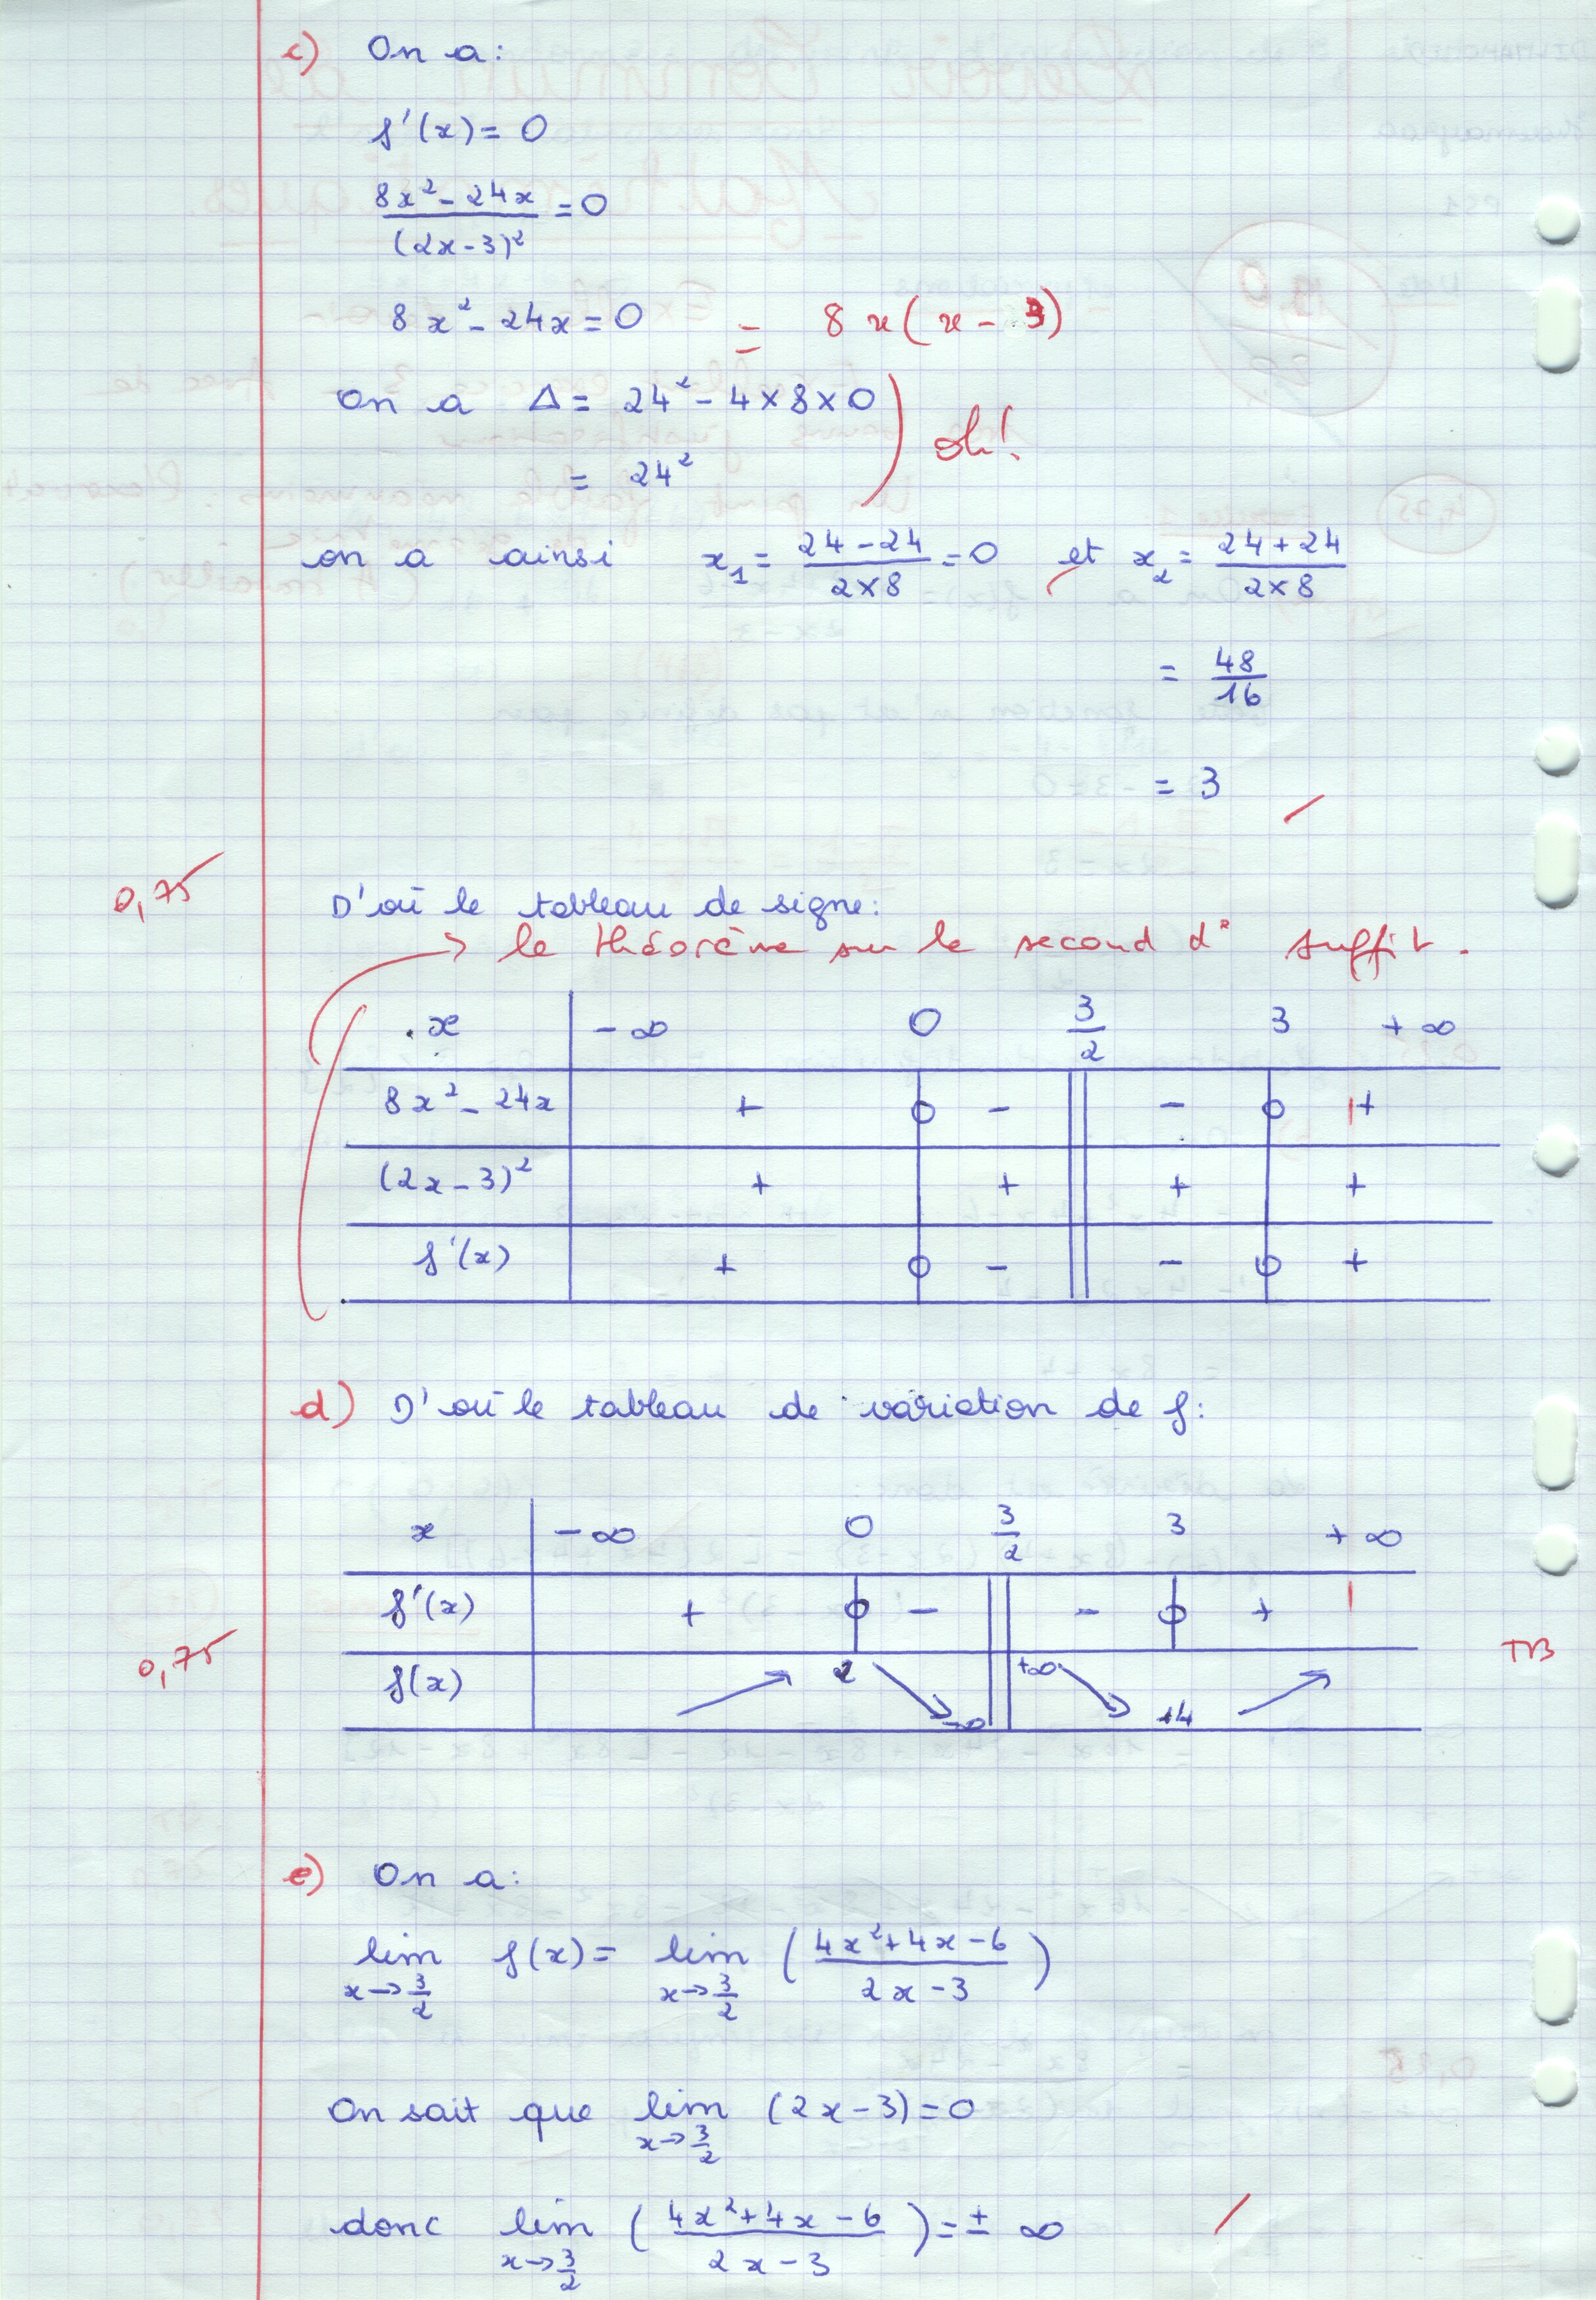 c) On a:
f'(x) = 0
(8x² - 24x)/(2x - 3)² = 0
8x² - 24x = 0 = 8x(x - 3)
On a Δ = 24² - 4 × 8 × 0
= 24² oh!
on a ainsi x₁ = (24 - 24)/(2 × 8) = 0 et x₂ = (24 + 24)/(2 × 8)
= 48/16
= 3
0,75
D'où le tableau de signe:
→ le théorème sur le second d° suffit.
x -∞ 0 3/2 3 +∞
8x² - 24x + 0 - || - 0 +
(2x - 3)² + + || + +
f'(x) + 0 - || - 0 +
d) D'où le tableau de variation de f:
x -∞ 0 3/2 3 +∞
f'(x) + 0 - || - 0 +
0,75 TB
f(x) ↗ 2 ↘ -∞ || +∞ ↘ 14 ↗
e) On a:
lim x→3/2 f(x) = lim x→3/2 ((4x² + 4x - 6)/(2x - 3))
On sait que lim x→3/2 (2x - 3) = 0
donc lim x→3/2 ((4x² + 4x - 6)/(2x - 3)) = ± ∞